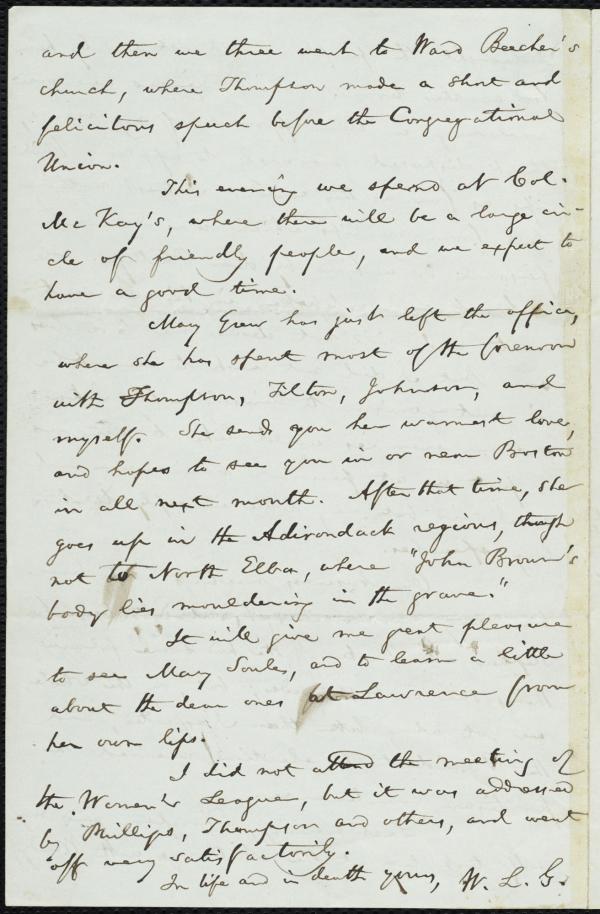 and then we three went to Ward Beecher's
church, where Thompson made a short and
felicitous speech before the Congregational
Union.
This evening we spend at Col.
McKay's, where there will be a large cir-
cle of friendly people, and we expect to
have a good time.
Mary Grew has just left the office,
where she has spent most of the forenoon
with Thompson, Tilton, Johnson, and
myself. She sends you her warmest love,
and hopes to see you in or near Boston
in all next month. After that time, she
goes up in the Adirondack regions, though
not to North Elba, where "John Brown's
body lies mouldering in the grave."
It will give me great pleasure
to see Mary Soule, and to learn a little
about the dear ones at Lawrence from
her own lips.
I did not attend the meeting of
the Women's League, but it was addressed
by Phillips, Thompson and others, and went
off very satisfactorily.
In life and in death yours, W. L. G.